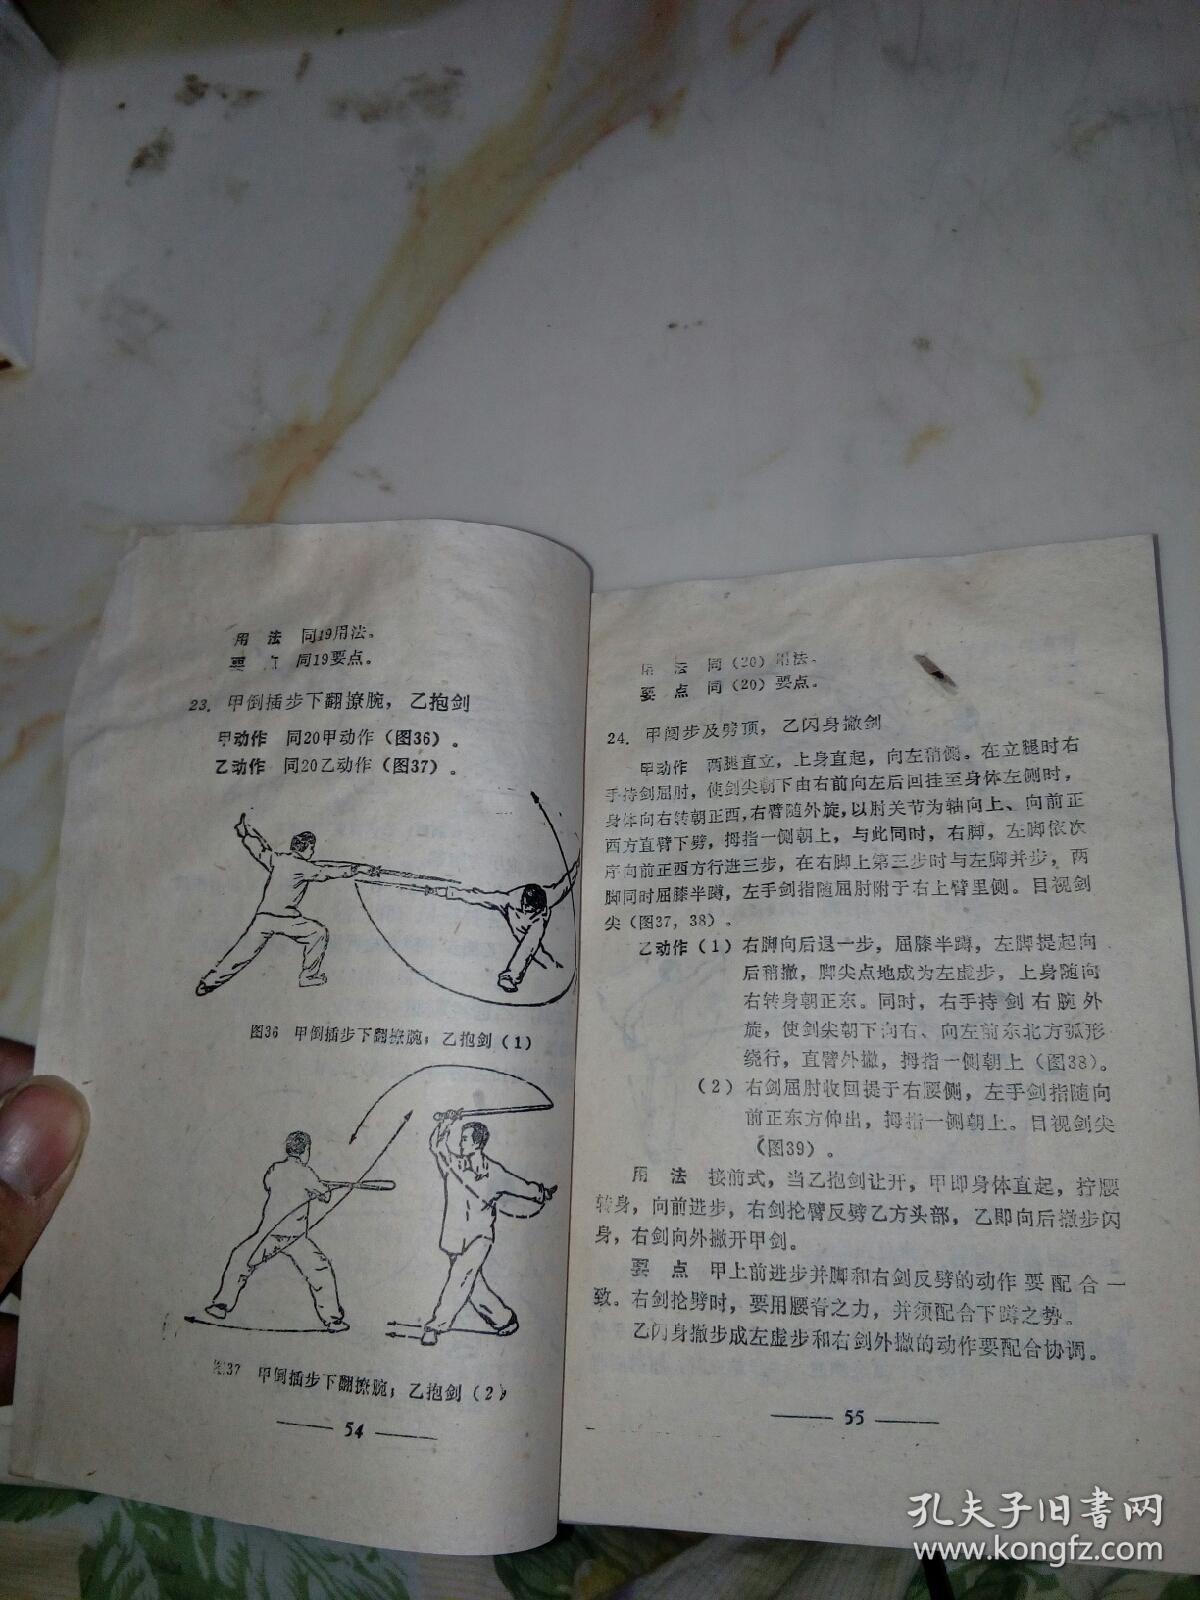 用 法 同19用法。
要 同19要点。
23. 甲倒插步下翻撩腕，乙抱剑
甲动作 同20甲动作（图36）。
乙动作 同20乙动作（图37）。
图36 甲倒插步下翻撩腕，乙抱剑（1）
图37 甲倒插步下翻撩腕，乙抱剑（2）
54
用 法 同（20）用法。
要 点 同（20）要点。
24. 甲阔步及劈顶，乙闪身撤剑
甲动作 两腿直立，上身直起，向左稍侧。在立腿时右
手持剑屈肘，使剑尖朝下由右前向左后回挂至身体左侧时，
身体向右转朝正西，右臂随外旋，以肘关节为轴向上、向前正
西方直臂下劈，拇指一侧朝上，与此同时，右脚，左脚依次
序向前正西方行进三步，在右脚上第三步时与左脚并步，两
脚同时屈膝半蹲，左手剑指随屈肘附于右上臂里侧。目视剑
尖（图37，38）。
乙动作（1）右脚向后退一步，屈膝半蹲，左脚提起向
后稍撤，脚尖点地成为左虚步，上身随向
右转身朝正东。同时，右手持剑右腕外
旋，使剑尖朝下向右、向左前东北方弧形
绕行，直臂外撇，拇指一侧朝上（图38）。
（2）右剑屈肘收回提于右腰侧，左手剑指随向
前正东方伸出，拇指一侧朝上。目视剑尖
（图39）。
用 法 接前式，当乙抱剑让开，甲即身体直起，拧腰
转身，向前进步，右剑抡臂反劈乙方头部，乙即向后撤步闪
身，右剑向外撇开甲剑。
要 点 甲上前进步并脚和右剑反劈的动作要配合一
致。右剑抡劈时，要用腰脊之力，并须配合下蹲之势。
乙闪身撤步成左虚步和右剑外撇的动作要配合协调。
55
孔夫子旧书网
www.kongfz.com